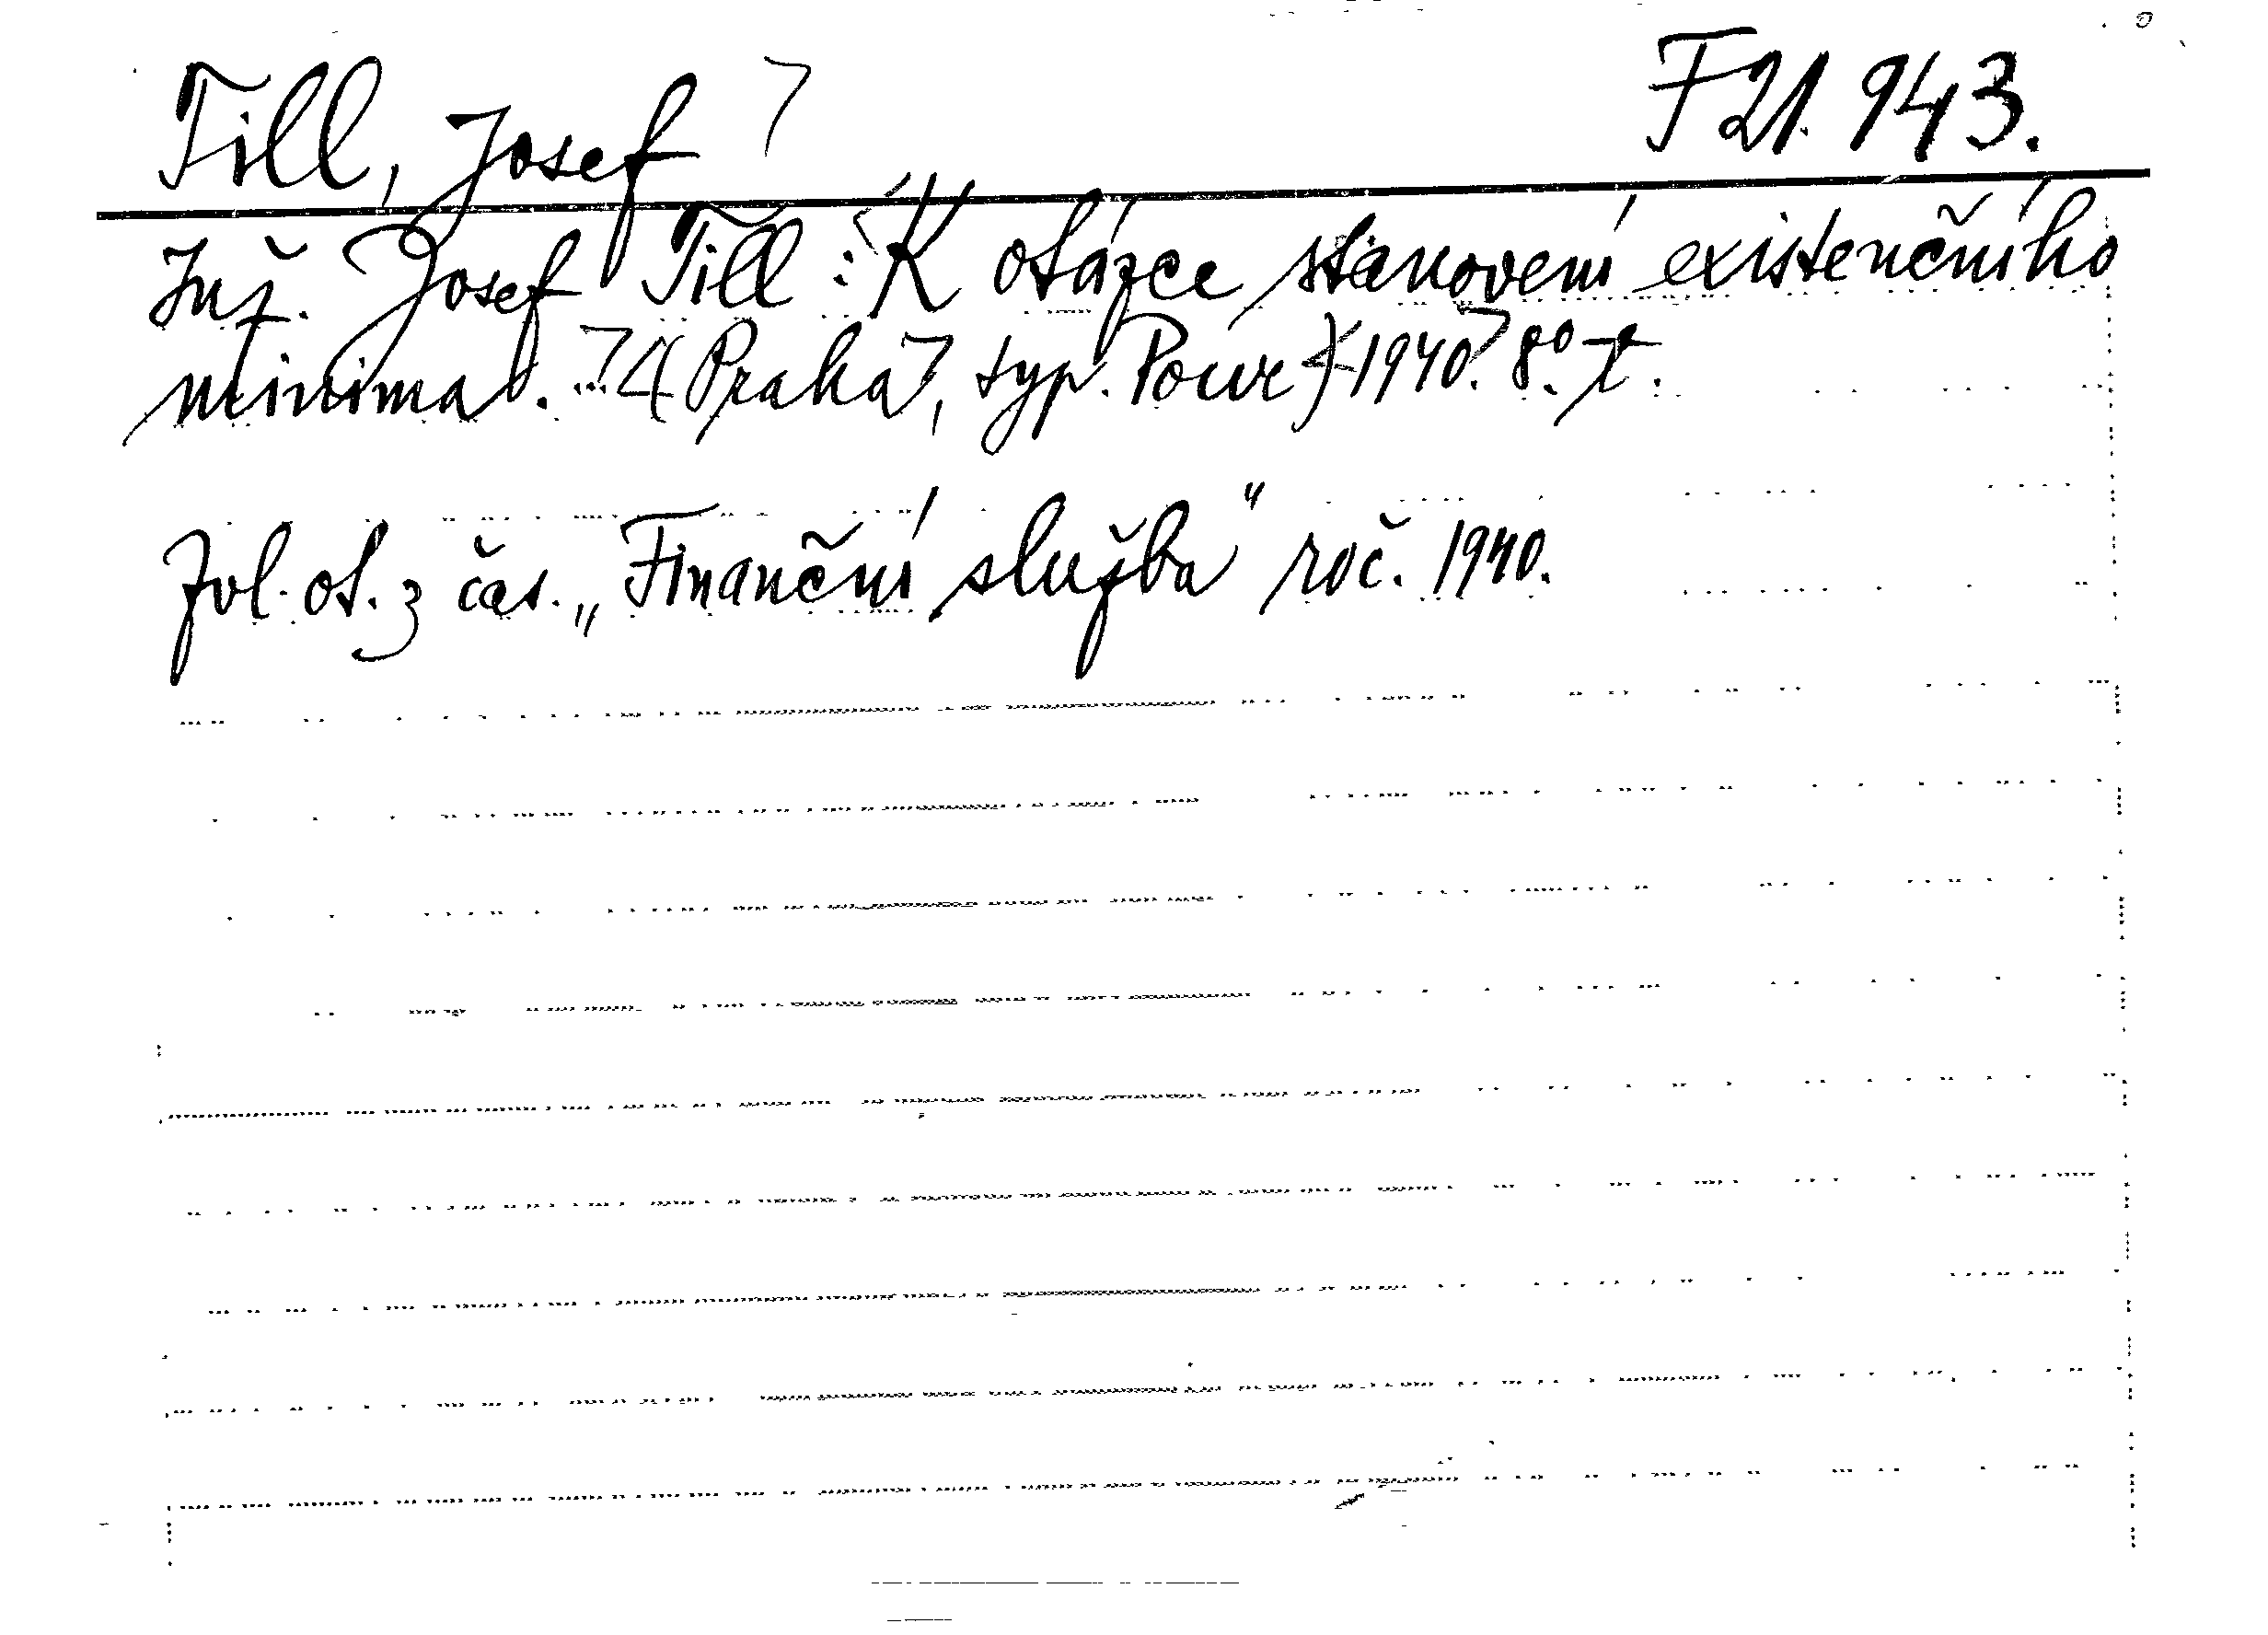 Till, Josef F 21.943.
Inž. Josef Till: K otázce stanovení existenčního
minima. (Praha, typ. Pour) 1940. 8°.
Zvl. ot. z čas. „Finanční služba“ roč. 1940.